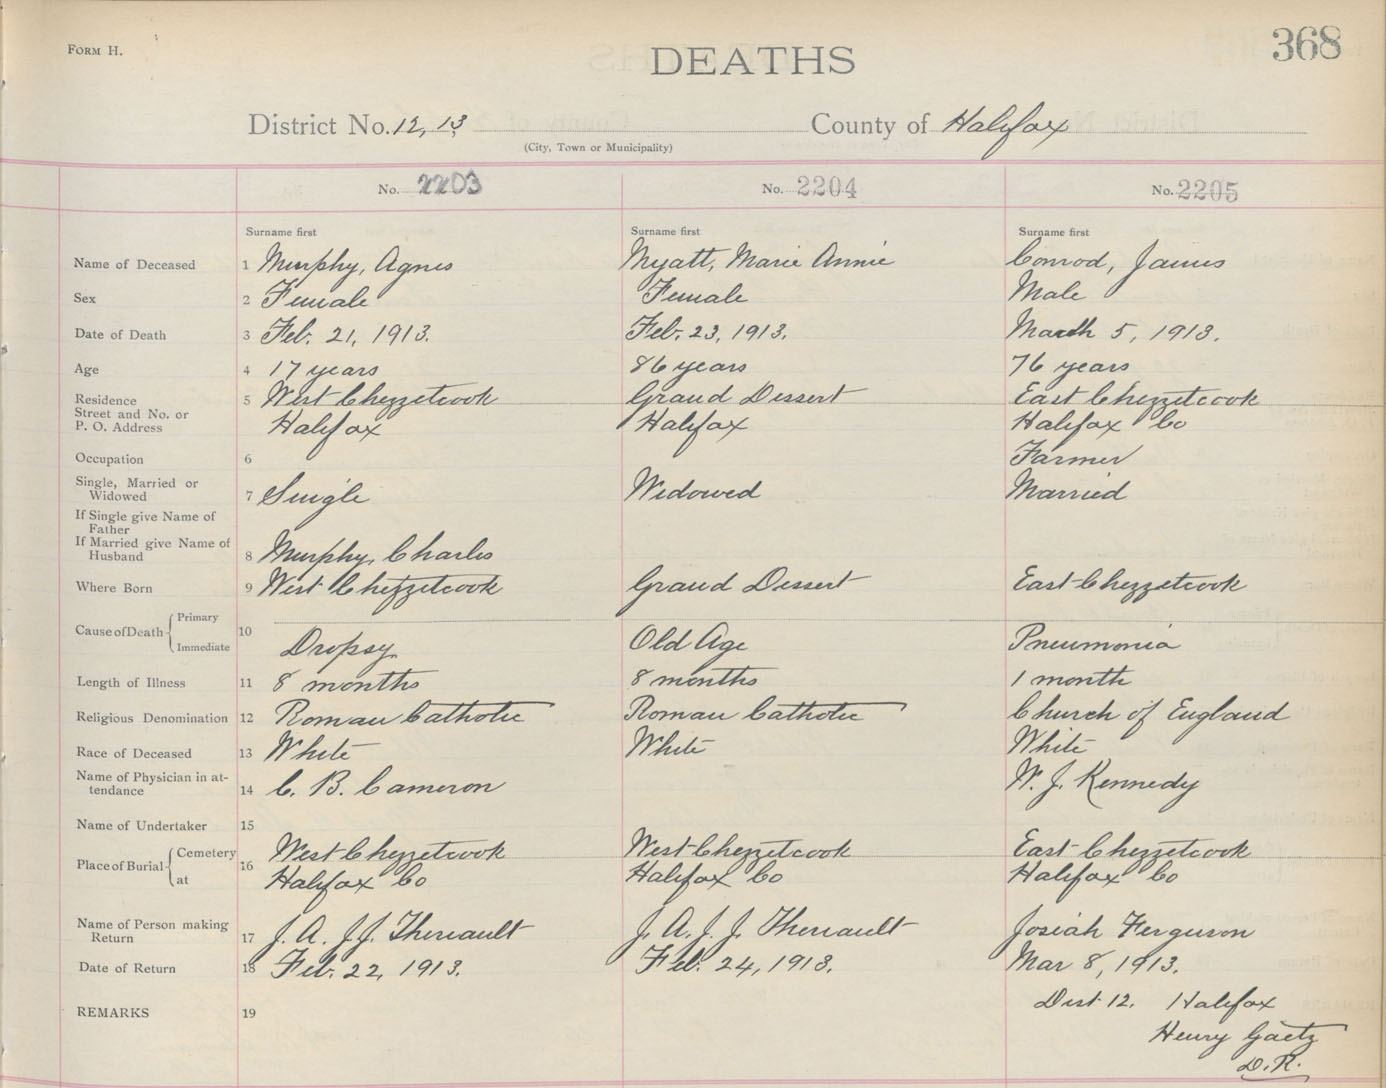 FORM H.
368
DEATHS
District No. 12, 13 County of Halifax
(City, Town or Municipality)
No. 2203 No. 2204 No. 2205
Surname first Surname first Surname first
Name of Deceased 1 Murphy, Agnes Myatt, Marie Annie Conrod, James
Sex 2 Female Female Male
Date of Death 3 Feb. 21, 1913. Feb. 23, 1913. March 5, 1913.
Age 4 17 years 86 years 76 years
Residence 5 West Chezzetcook Grand Dessert East Chezzetcook
Street and No. or
P. O. Address Halifax Halifax Halifax Co
Occupation 6 Farmer
Single, Married or
Widowed 7 Single Widowed Married
If Single give Name of
Father
If Married give Name of
Husband 8 Murphy, Charles
Where Born 9 West Chezzetcook Grand Dessert East Chezzetcook
Cause of Death Primary 10
Immediate Dropsy Old Age Pneumonia
Length of Illness 11 8 months 8 months 1 month
Religious Denomination 12 Roman Catholic Roman Catholic Church of England
Race of Deceased 13 White White White
Name of Physician in at-
tendance 14 C. B. Cameron W. J. Kennedy
Name of Undertaker 15
Place of Burial Cemetery 16 West Chezzetcook West Chezzetcook East Chezzetcook
at Halifax Co Halifax Co Halifax Co
Name of Person making
Return 17 J. A. J. J. Theriault J. A. J. J. Theriault Josiah Ferguson
Date of Return 18 Feb. 22, 1913. Feb. 24, 1913. Mar 8, 1913.
REMARKS 19 Dist 12. Halifax
Henry Gaetz
D.R.